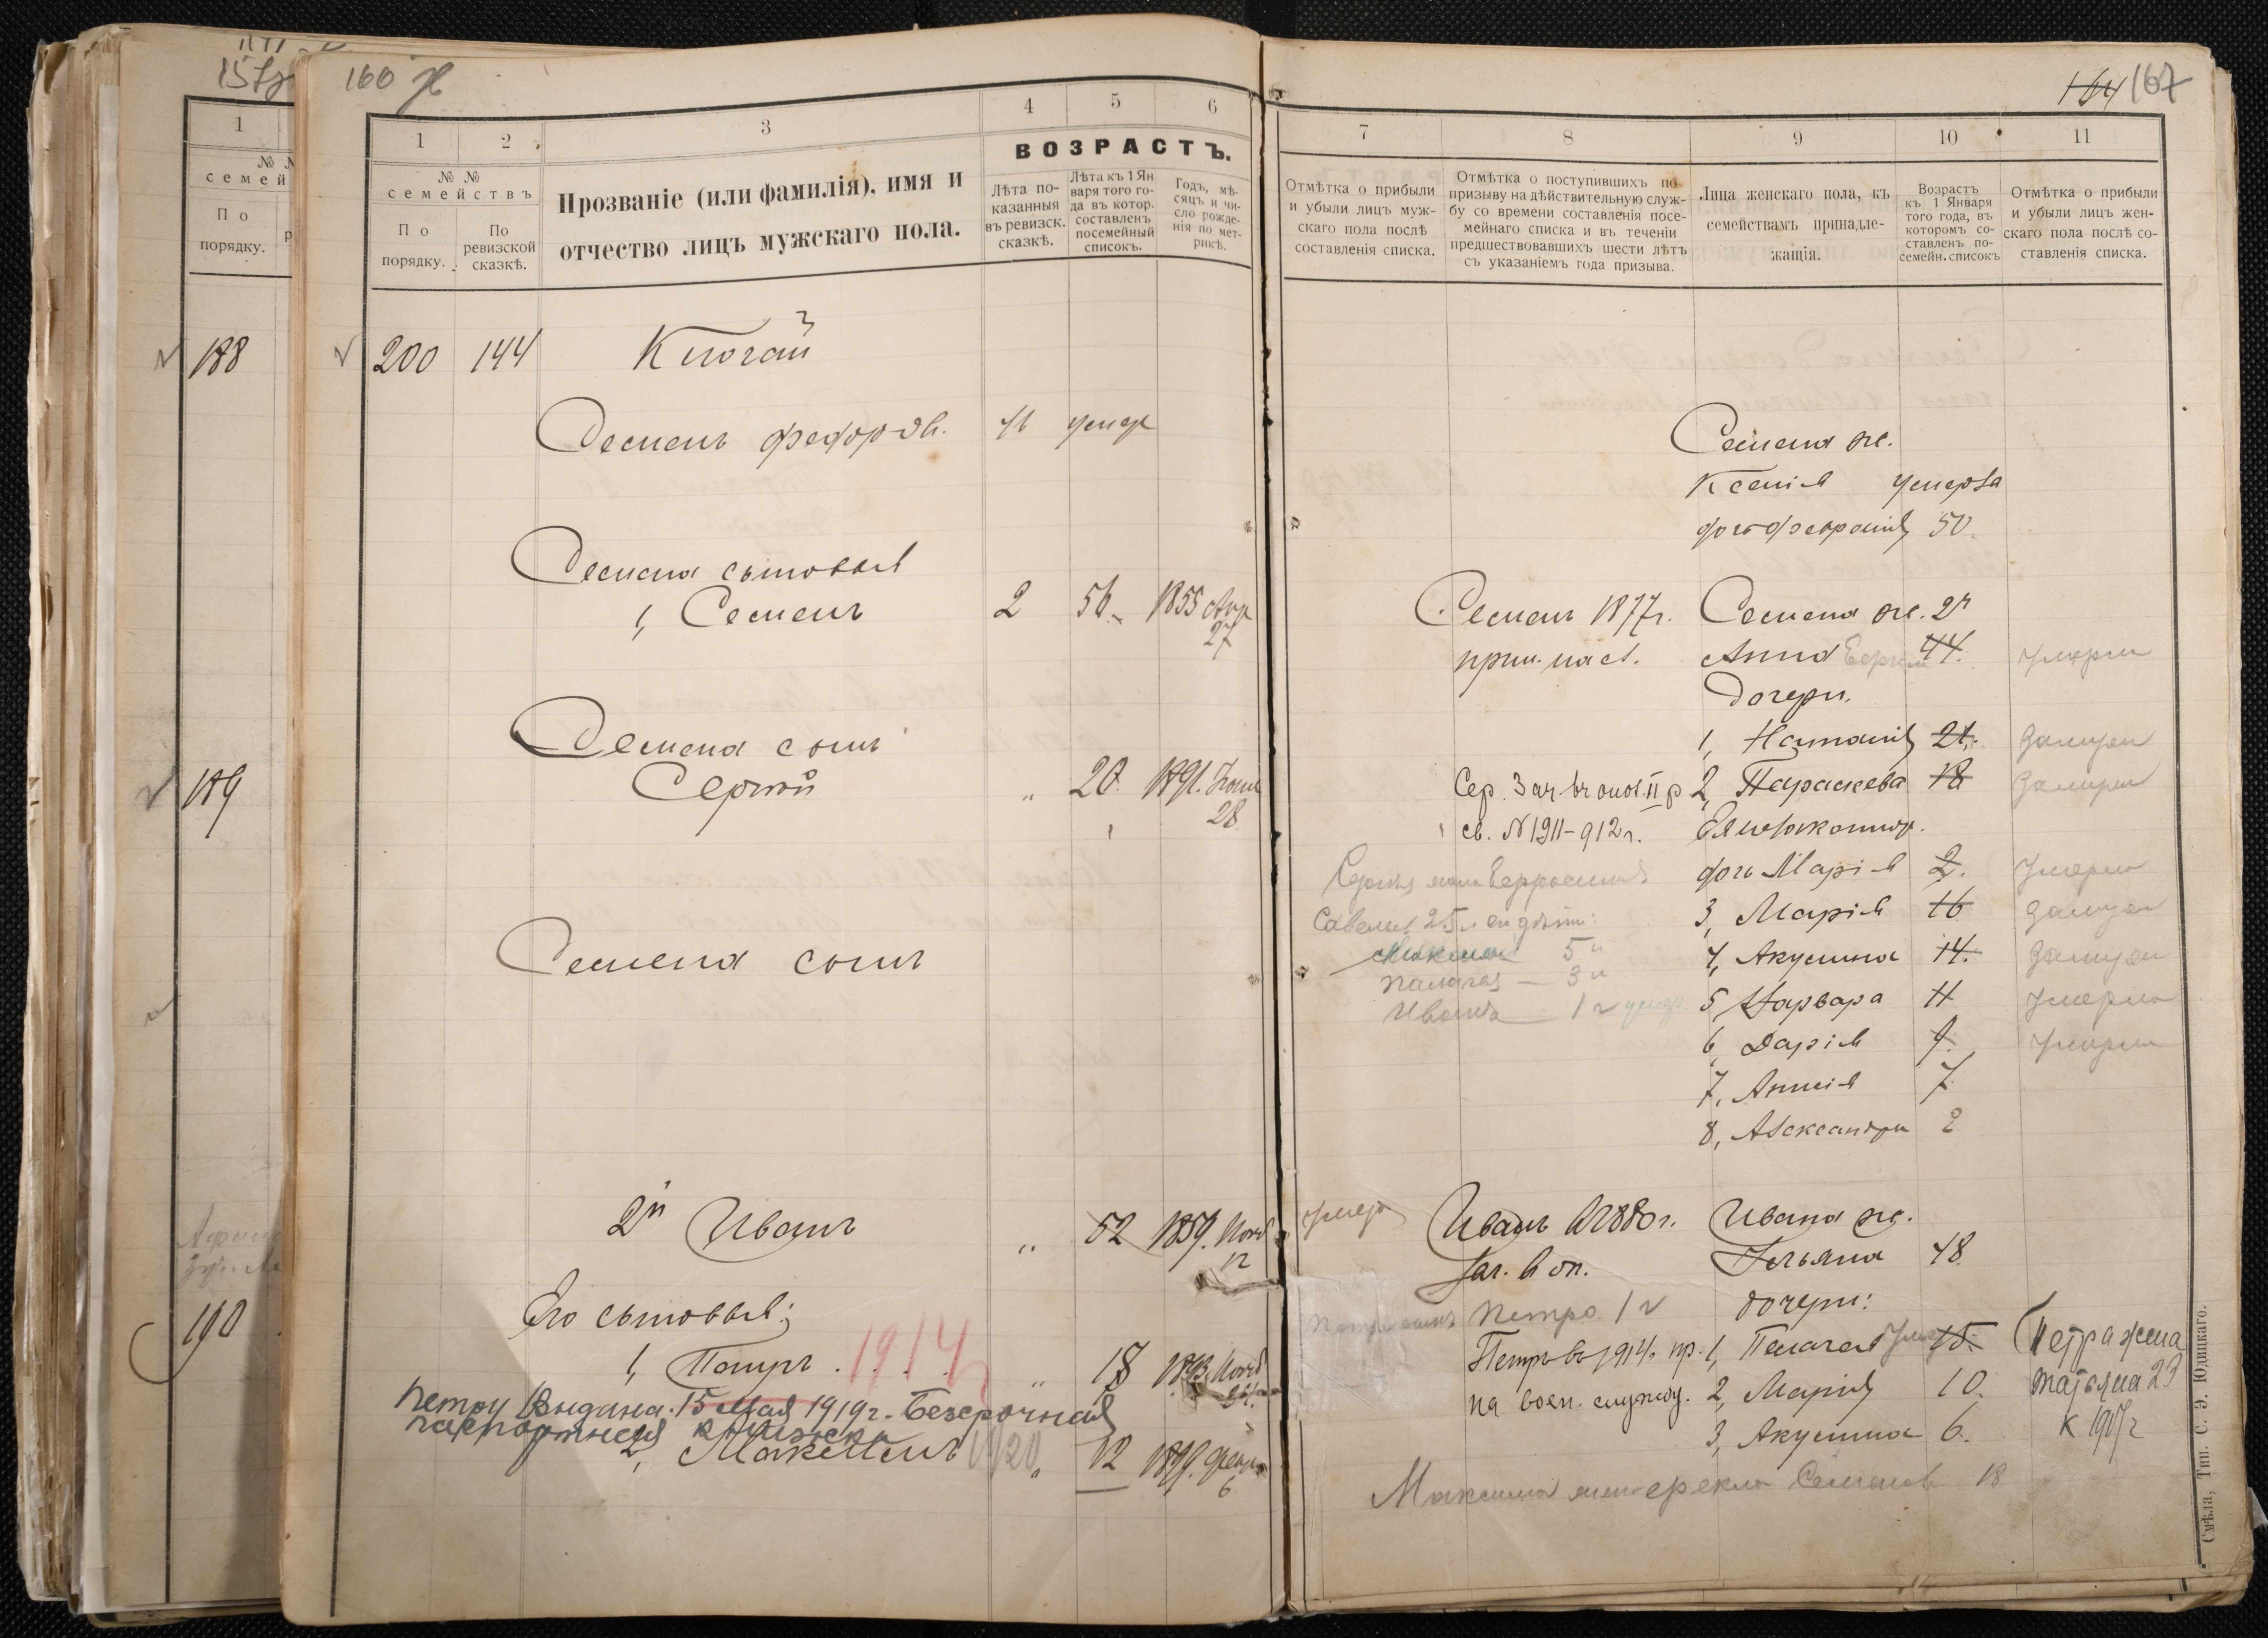 160
164 167
1
№
семей
По
порядку.
188
189
190
1 2 3 4 5 6
№ №
семействъ
По
порядку.
По
ревизской
сказкѣ.
Прозваніе (или фамилія), имя и
отчество лицъ мужскаго пола.
ВОЗРАСТЪ.
Лѣта по-
казанныя
въ ревизск.
сказкѣ.
Лѣта къ 1 Ян
варя того го-
да въ котор.
составленъ
посемейный
списокъ.
Годъ, мѣ-
сяцъ и чи-
сло рожде-
нія по мет-
рикѣ.
200 144
Семенъ Федоровъ. умер
Семена сыновья
1, Семенъ 2 56 1855 Апр
27
Семена сынъ
Сергѣй " 20. 1891.
28
Семена сынъ
2й Иванъ " 52 1859. Нояб
12
Его сыновья:
1, Петръ . 1914 " 18 1893, Нояб
24.
Петру Выдана 15 мая 1919 г. Безсрочная
паспортная книжка
2, Максимъ 1920 " 12 1899. Февр
6
7 8 9 10 11
Отмѣтка о прибыли
и убыли лицъ муж-
скаго пола послѣ
составленія списка.
Отмѣтка о поступившихъ по
призыву на дѣйствительную служ-
бу со времени составленія посе-
мейнаго списка и въ теченіи
предшествовавшихъ шести лѣтъ
съ указаніемъ года призыва.
Лица женскаго пола, къ
семействамъ принадле-
жащія.
Возрастъ
къ 1 Января
того года, въ
котором со-
ставленъ по-
семейн. списокъ
Отмѣтка о прибыли
и убыли лицъ жен-
скаго пола послѣ со-
ставленія списка.
Семена ж.
Ксенія умерла
дочь 50.
Семенъ 1877 г. Семена ж. 2я
Анна 44. умерла
Дочери.
1, Наталія 21. замуж
2, Параскева 18 замуж
св. № 1911-912 г.
дочь Марія 2. умерла
3, Марія 16 замуж
Савельев 25 л
Максим 5
4, Акулина 14. замуж
Палагея — 3
5, Варвара 11 умерла
Ивана — 1 г умер.
6, Дарія 9. умерла
7, Анисія 7.
8, Александра 2
умер Иванъ 1880 г. Ивана ж.
Зач. в оп. Татьяна 48
Петро 1 г дочери:
Петръ въ 1914. пр. 1, Пелагея 15. Петра жена
на воен. службу. 2, Марія 10. Татьяна 23
3, Акулина 6. к 1917 г
Максима 18
Смѣла, Тип. С. Э. Юдицкаго.